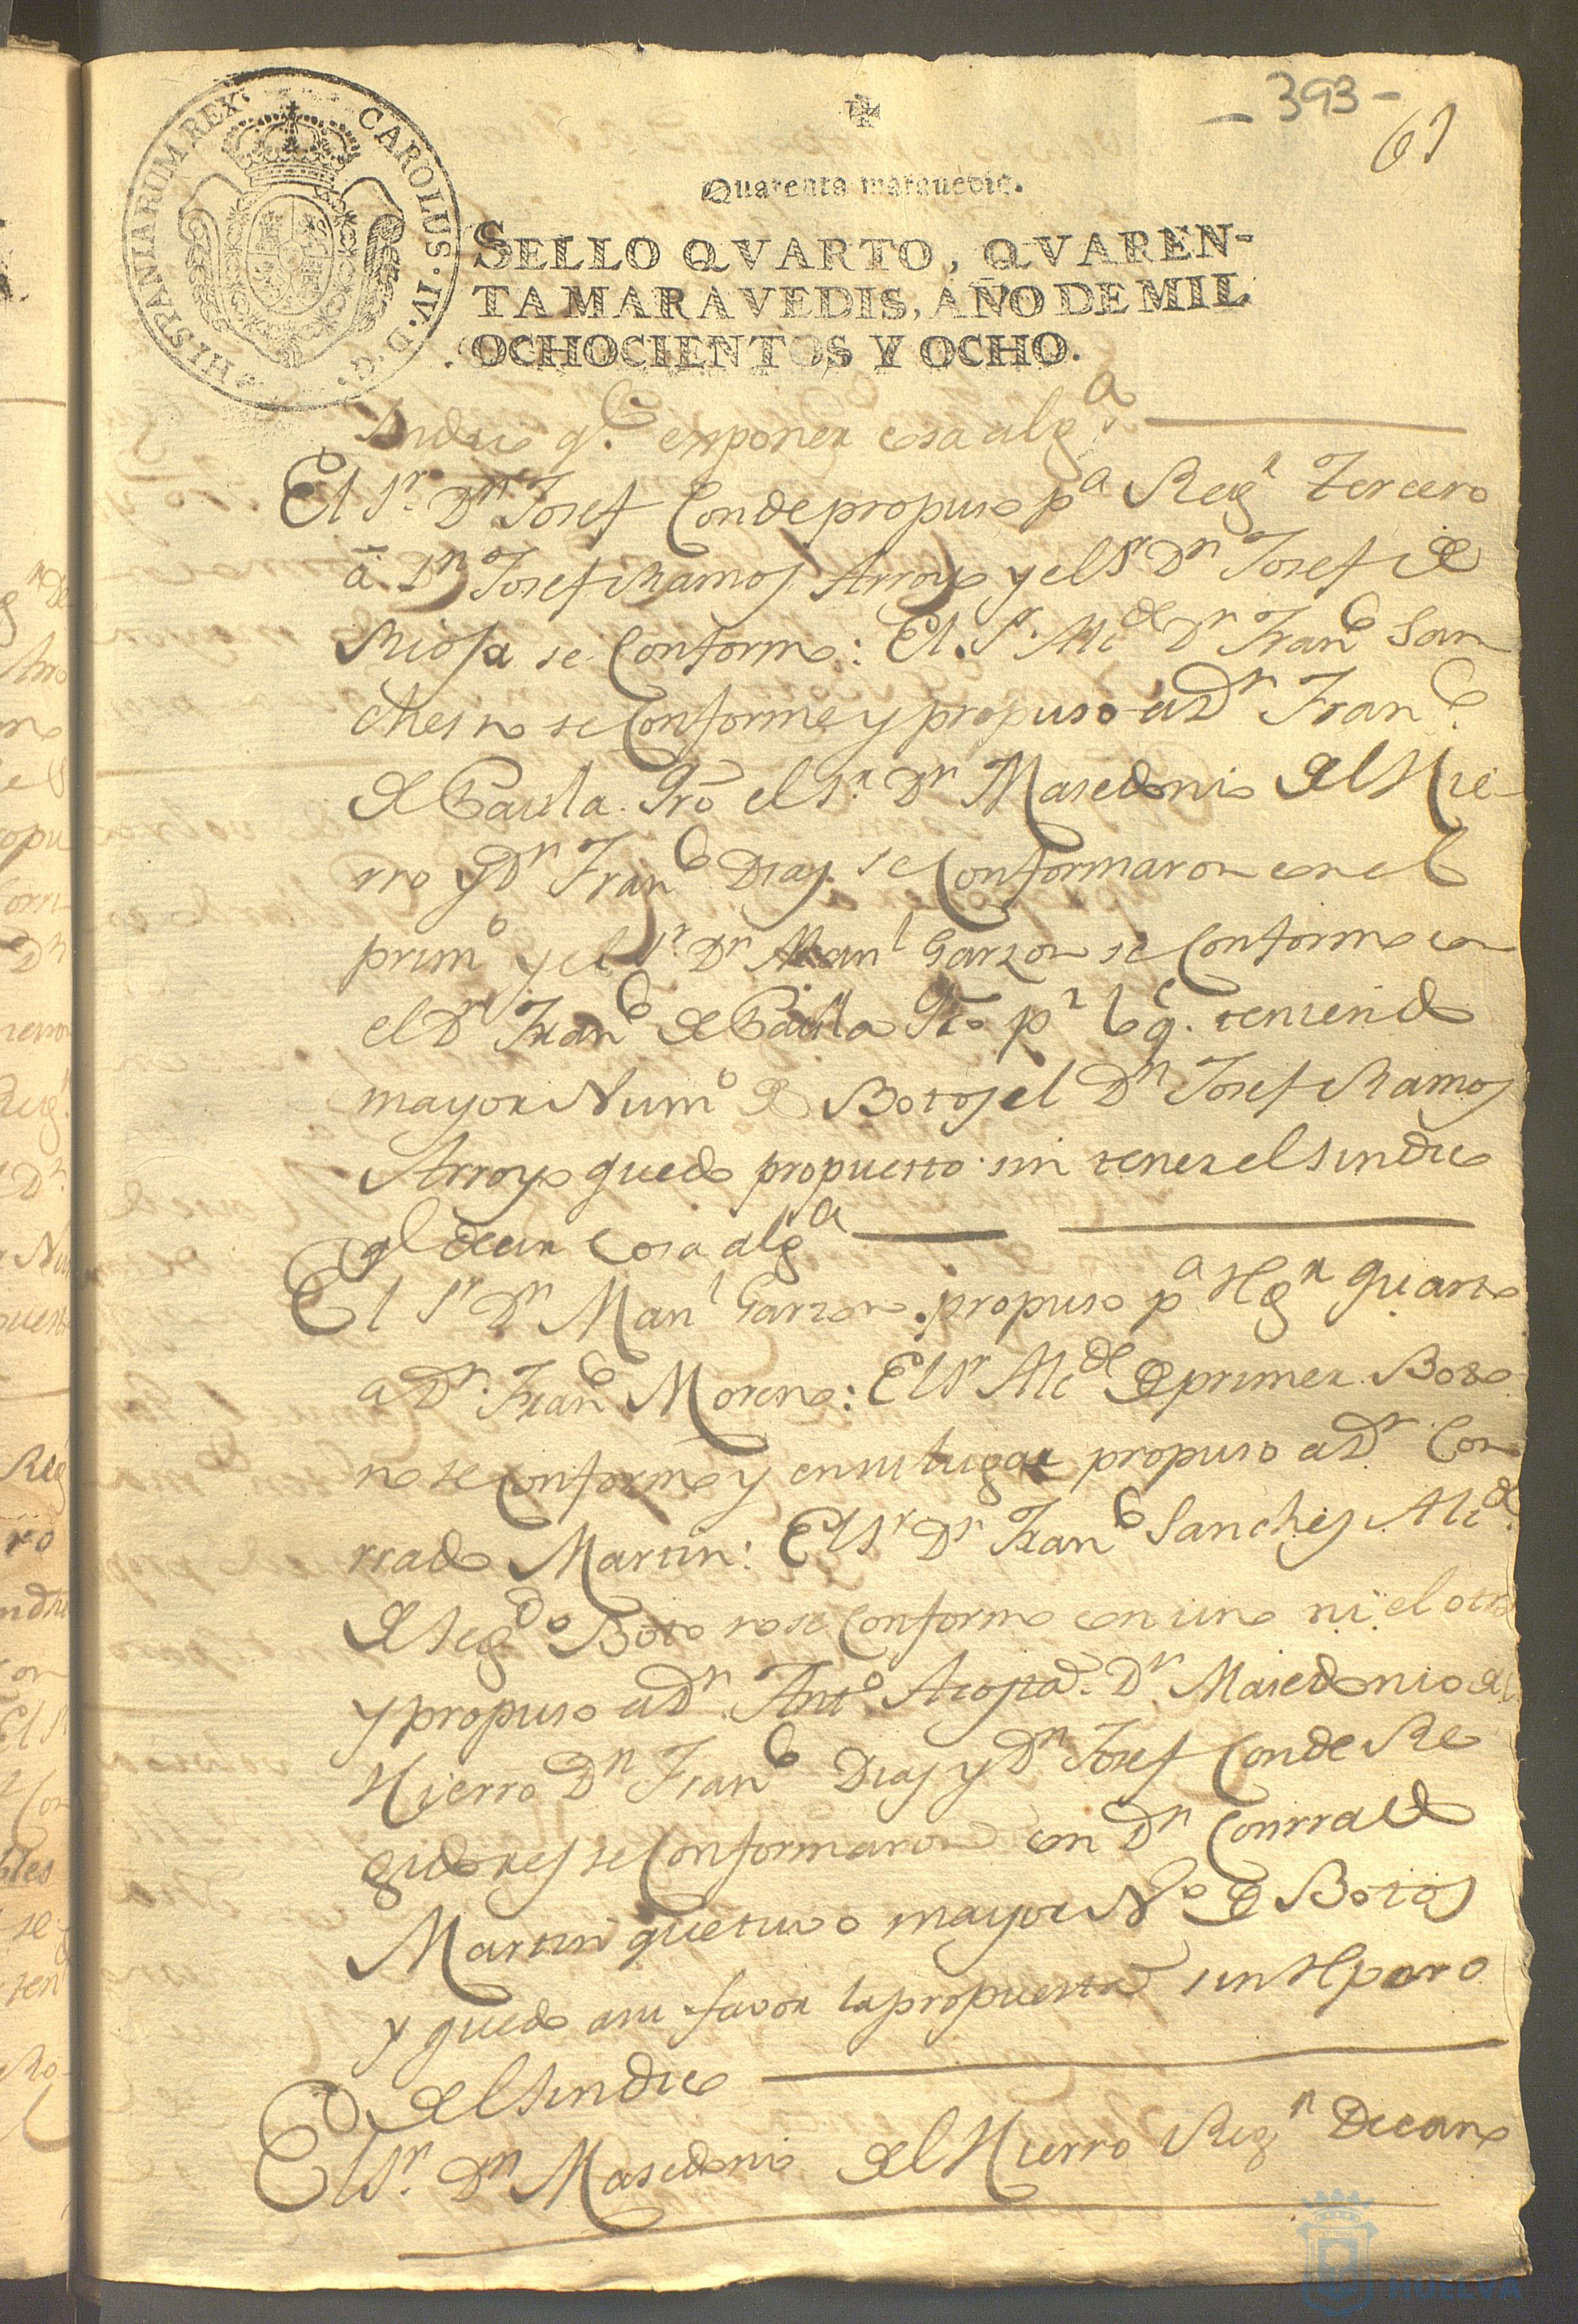 -393-
61
HISPANIARUM REX. CAROLUS IV. D. G.
Quarenta marauedis.
SELLO QVARTO, QVAREN-
TA MARAVEDIS, AÑO DE MIL
OCHOCIENTOS Y OCHO.
Sindico qe. exponer cosa alga.
El Sr. Dn Josef Conde propuso pa Regr tercero
á Dn Josef Ramos Arroyo y el Sr Dn Josef de
Rioja se Conformo: El Sr. Alcde Dn Franco San
ches no se Conforme y propuso a Dn Franco.
de Paula el Sr. Dn Masedonio del Hie-
rro y Dn Franco Dias se Conformaron con el
primo y el Sr. Dn Manl Garzon se Conformo con
el Dn Franco de Paula pr lo q. teniendo
mayor Numo de Botos el Dn Josef Ramos
Arroyo quedo propuesto sin tener el sindico
gl decir Cosa alga
El Sr Dn Manl Garzon propuso pa Rgr quarto
a Dn. Franco Moreno: El Sr Alcde de primer Boto
no se Conformo y en su lugar propuso a Dn Con
rrado Martin: El Sr Dn Franco Sanches Alcde.
de segdo Boto no se Conformo con uno ni el otro
y propuso a Dn Anto Acosta. Dn Masedonio del
Hierro Dn Franco Dias y Dn Josef Conde Re
gidores se Conformaron con Dn Conrrado
Martin que tuvo mayor No de Botos
y quedo a su favor la propuesta sin Reparo
del sindico
El Sr. Dn Masedonio del Hierro Regr Decano
HUELVA